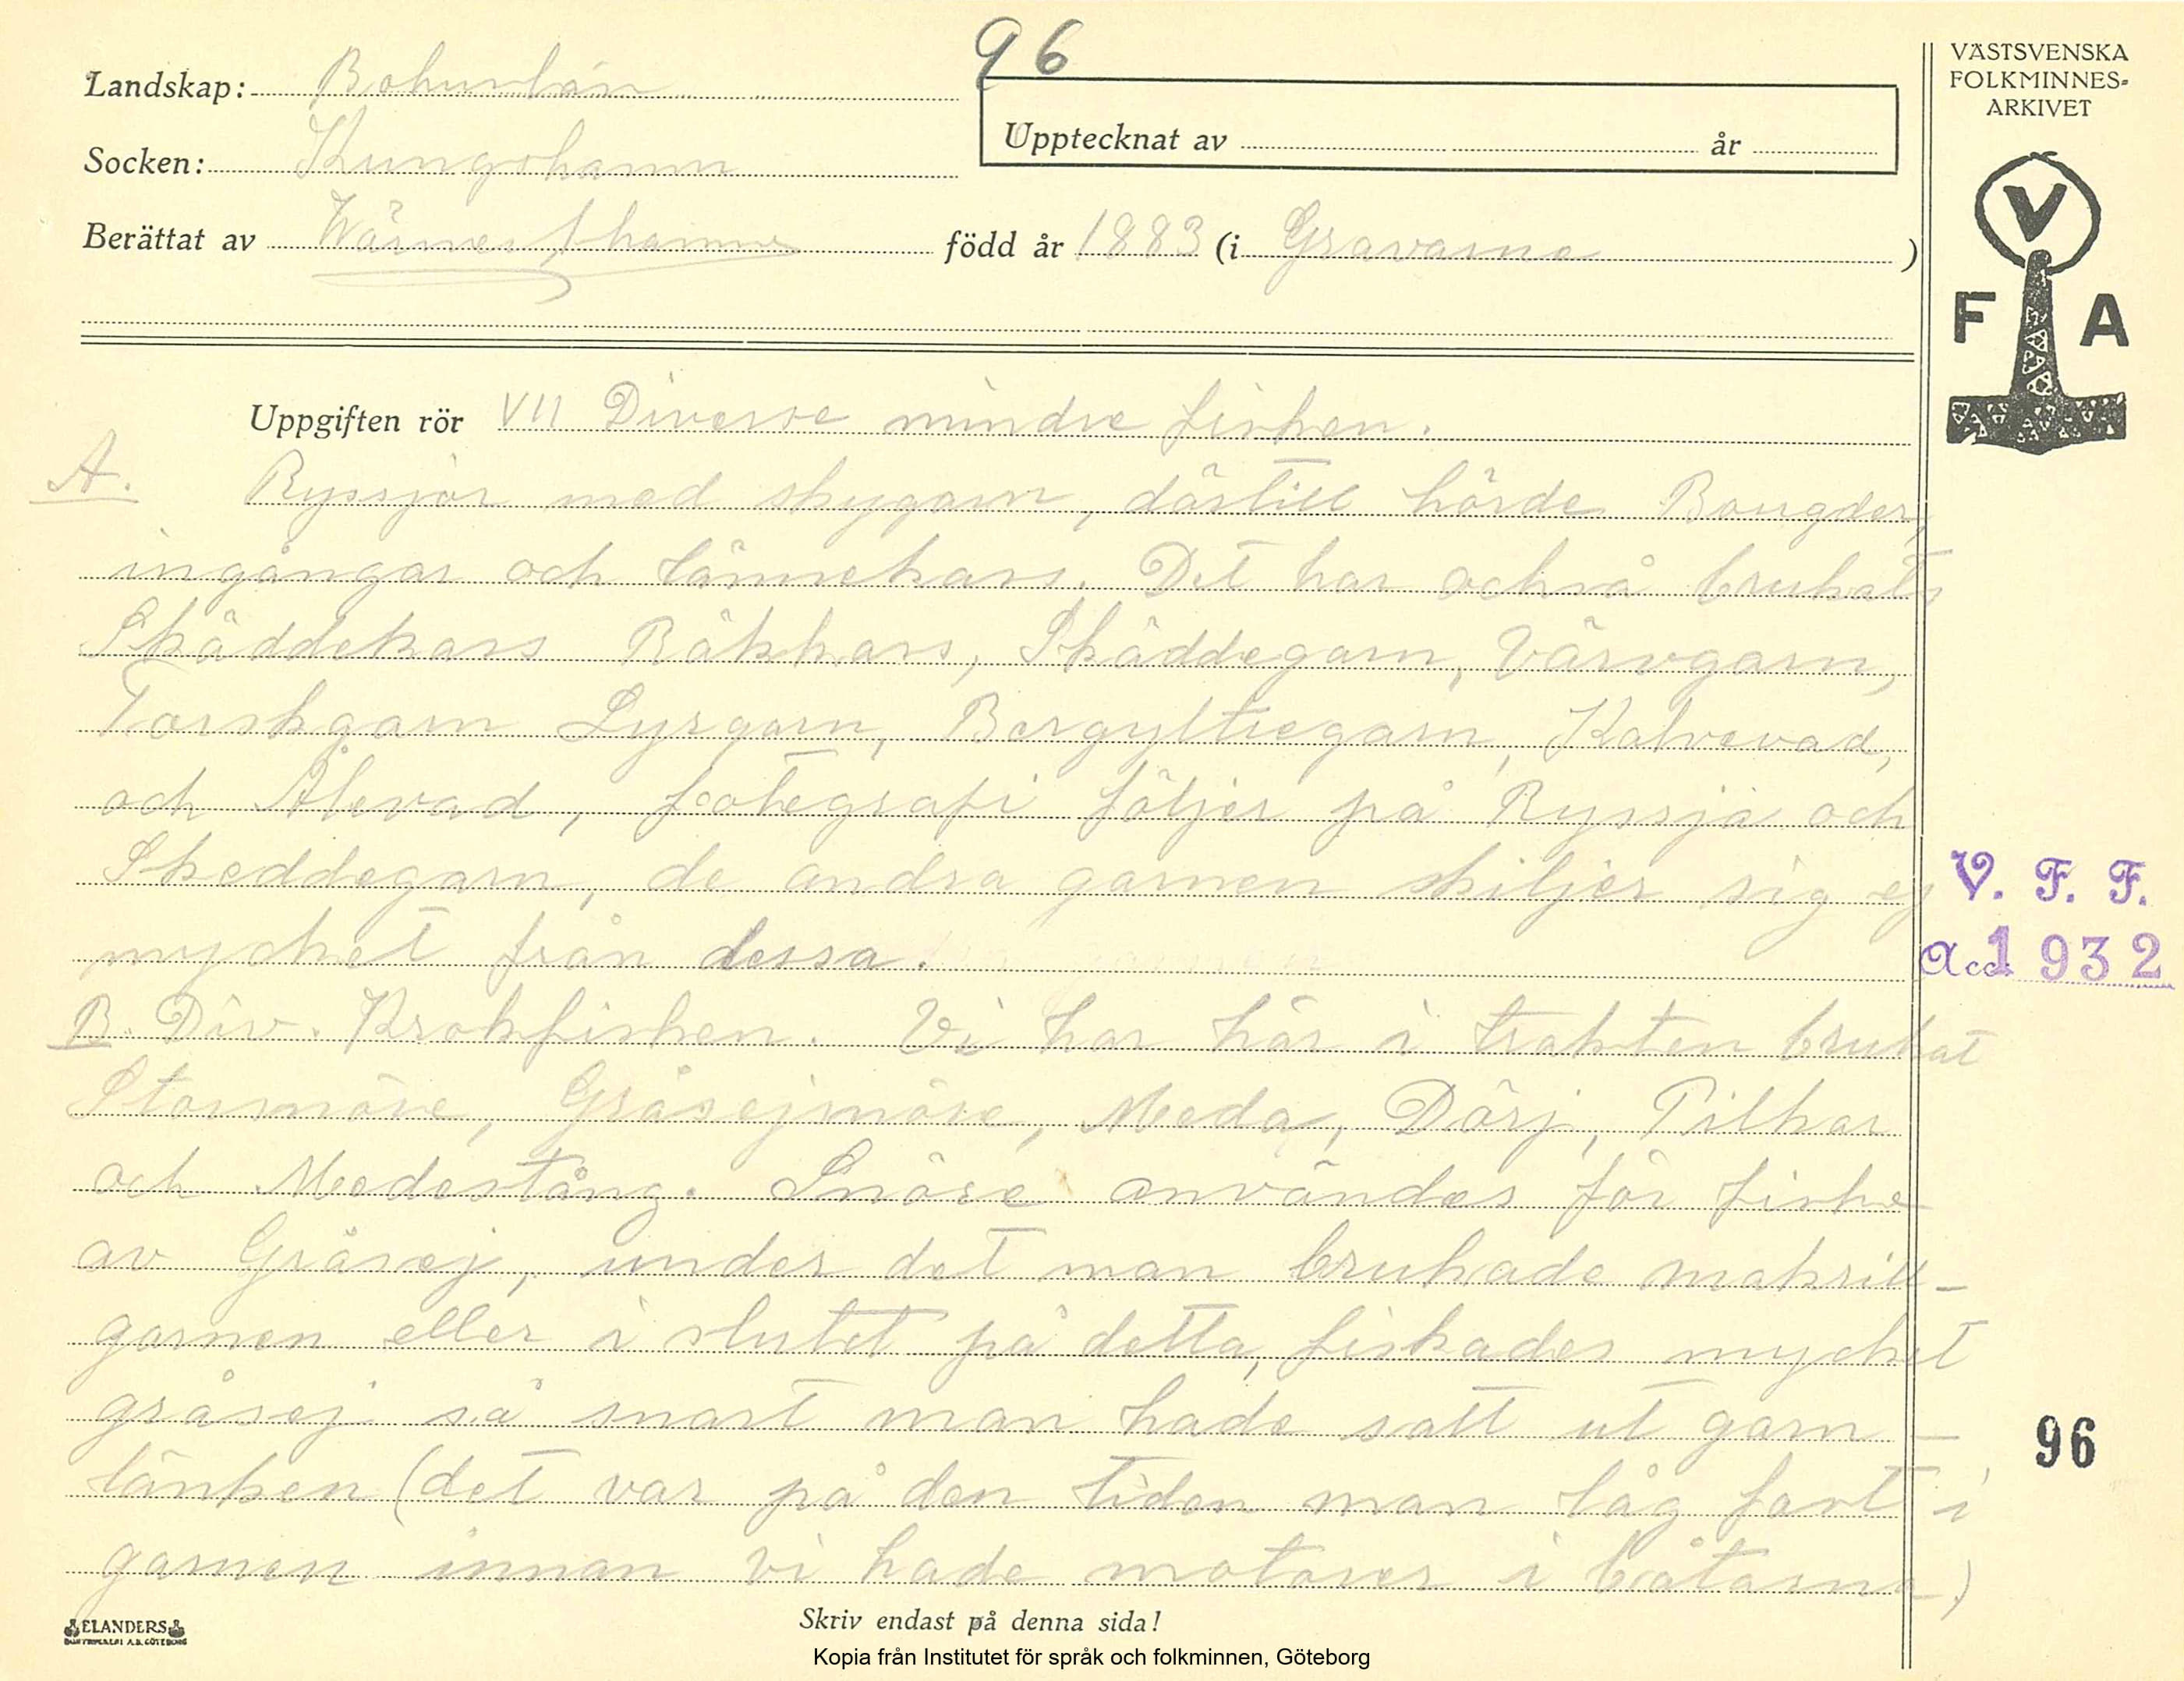 96
VÄSTSVENSKA
FOLKMINNES-
ARKIVET
Landskap: Bohuslän
Upptecknat av år
Socken: Kungshamn
Berättat av född år 1883 (i Gravarna )
V
F A
Uppgiften rör VII Diverse mindre fisken.
A. Ryssjor med skygarn, därtill hörde Bougder,
ingångar och . Det har också brukats
Skäddekars Räkkars, Skäddegarn, Vårvgarn,
Torskgarn Lyrgarn, Bergyltregarn, Kalvevad,
och Ålevad, fotegrafi följer på Ryssja och
Skeddegarn, de andra garnen skiljer sig ej
mycket från dessa.
V. F. F.
Acc 1932
B. Div. Krokfisken. Vi har här i trakten brukat
Storsnöre, Gråsejsnöre, Meda, Dörj, Pilkar
och Medestång. Snöre användes för fiske
av Gråsej, under det man brukade makrill-
garnen eller i slutet på detta, fiskades mycket
gråsej så snart man hade satt ut garn-
länken (det var på den tiden man låg fast i
garnen innan vi hade motorer i båtarna)
96
ELANDERS
Skriv endast på denna sida!
Kopia från Institutet för språk och folkminnen, Göteborg